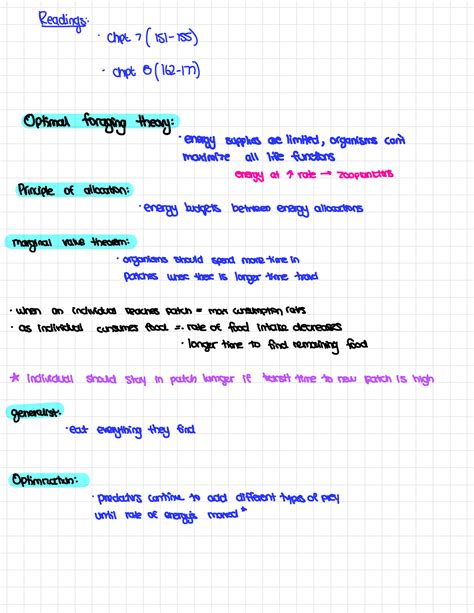 Readings:
· chpt 7 (151-155)
· chpt 8 (162-171)
Optimal foraging theory:
· energy supplies are limited, organisms can't
maximize all life functions
energy at ↑ rate → zooplanktors
Principle of allocation:
· energy budgets between energy allocations
marginal value theorem:
· organisms should spend more time in
patches when there is longer time travel
· when an individual reaches patch = max consumption rates
· as individual consumes food = rate of food intake decreases
· longer time to find remaining food
* individual should stay in patch longer if transit time to new patch is high
generalist:
· eat everything they find
Optimization:
· predators continue to add different types of prey
until rate of energy is *